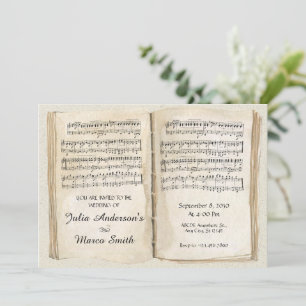 YOU ARE INVITED TO THE
WEDDING OF
Julia Anderson's
And
Marco Smith
September 8, 2030
At 4:00 Pm
ABCDE Anywhere St.,
Any City, St 12345
Rsvp to